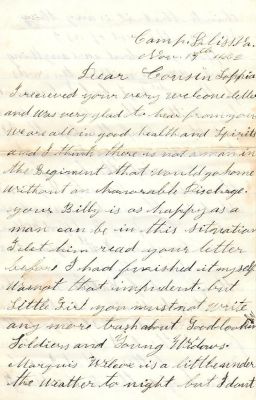 Camp
Nov. 19th 1862
Dear Cousin Sophia
I recieved your very welcome letter
and was very glad to hear from you
we are all in good health and Spirits
and I think there is not a man in
the Regiment that would go home
without an Honorable Discharge.
your Billy is as happy as a
man can be in this Situation
I let him read your letter
before I had finished it myself
Was not that impudent. but
Little Girl you must not write
any more trash about Good looking
Soldiers and Young Widows.
Marquis is a little under
the Weather to night but I dont